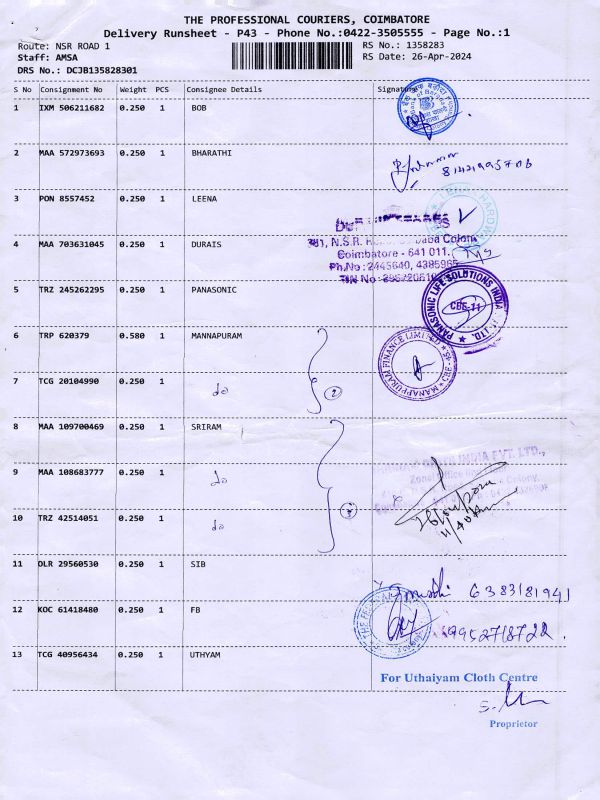 THE PROFESSIONAL COURIERS, COIMBATORE
Delivery Runsheet - P43 - Phone No.:0422-3505555 - Page No.:1
Route: NSR ROAD 1
RS No.: 1358283
Staff: AMSA
RS Date: 26-Apr-2024
DRS No.: DCJB135828301
S No Consignment No Weight PCS Consignee Details Signature
1 IXM 506211682 0.250 1 BOB
2 MAA 572973693 0.250 1 BHARATHI
3 PON 8557452 0.250 1 LEENA
4 MAA 703631045 0.250 1 DURAIS
381, N.S.R. Colony
Coimbatore - 641 011.
Ph.No : 2445640, 4385965
5 TRZ 245262295 0.250 1 PANASONIC
PANASONIC LIFE SOLUTIONS INDIA PVT. LTD.
CBE-11
6 TRP 620379 0.580 1 MANNAPURAM
MANAPPURAM FINANCE LIMITED
7 TCG 20104990 0.250 1 do 2
8 MAA 109700469 0.250 1 SRIRAM
INDIA PVT. LTD.,
9 MAA 108683777 0.250 1 do
10 TRZ 42514051 0.250 1 do
11 DLR 29560530 0.250 1 SIB
6383181941
12 KOC 61418480 0.250 1 FB
9952718722.
13 TCG 40956434 0.250 1 UTHYAM
For Uthaiyam Cloth Centre
Proprietor